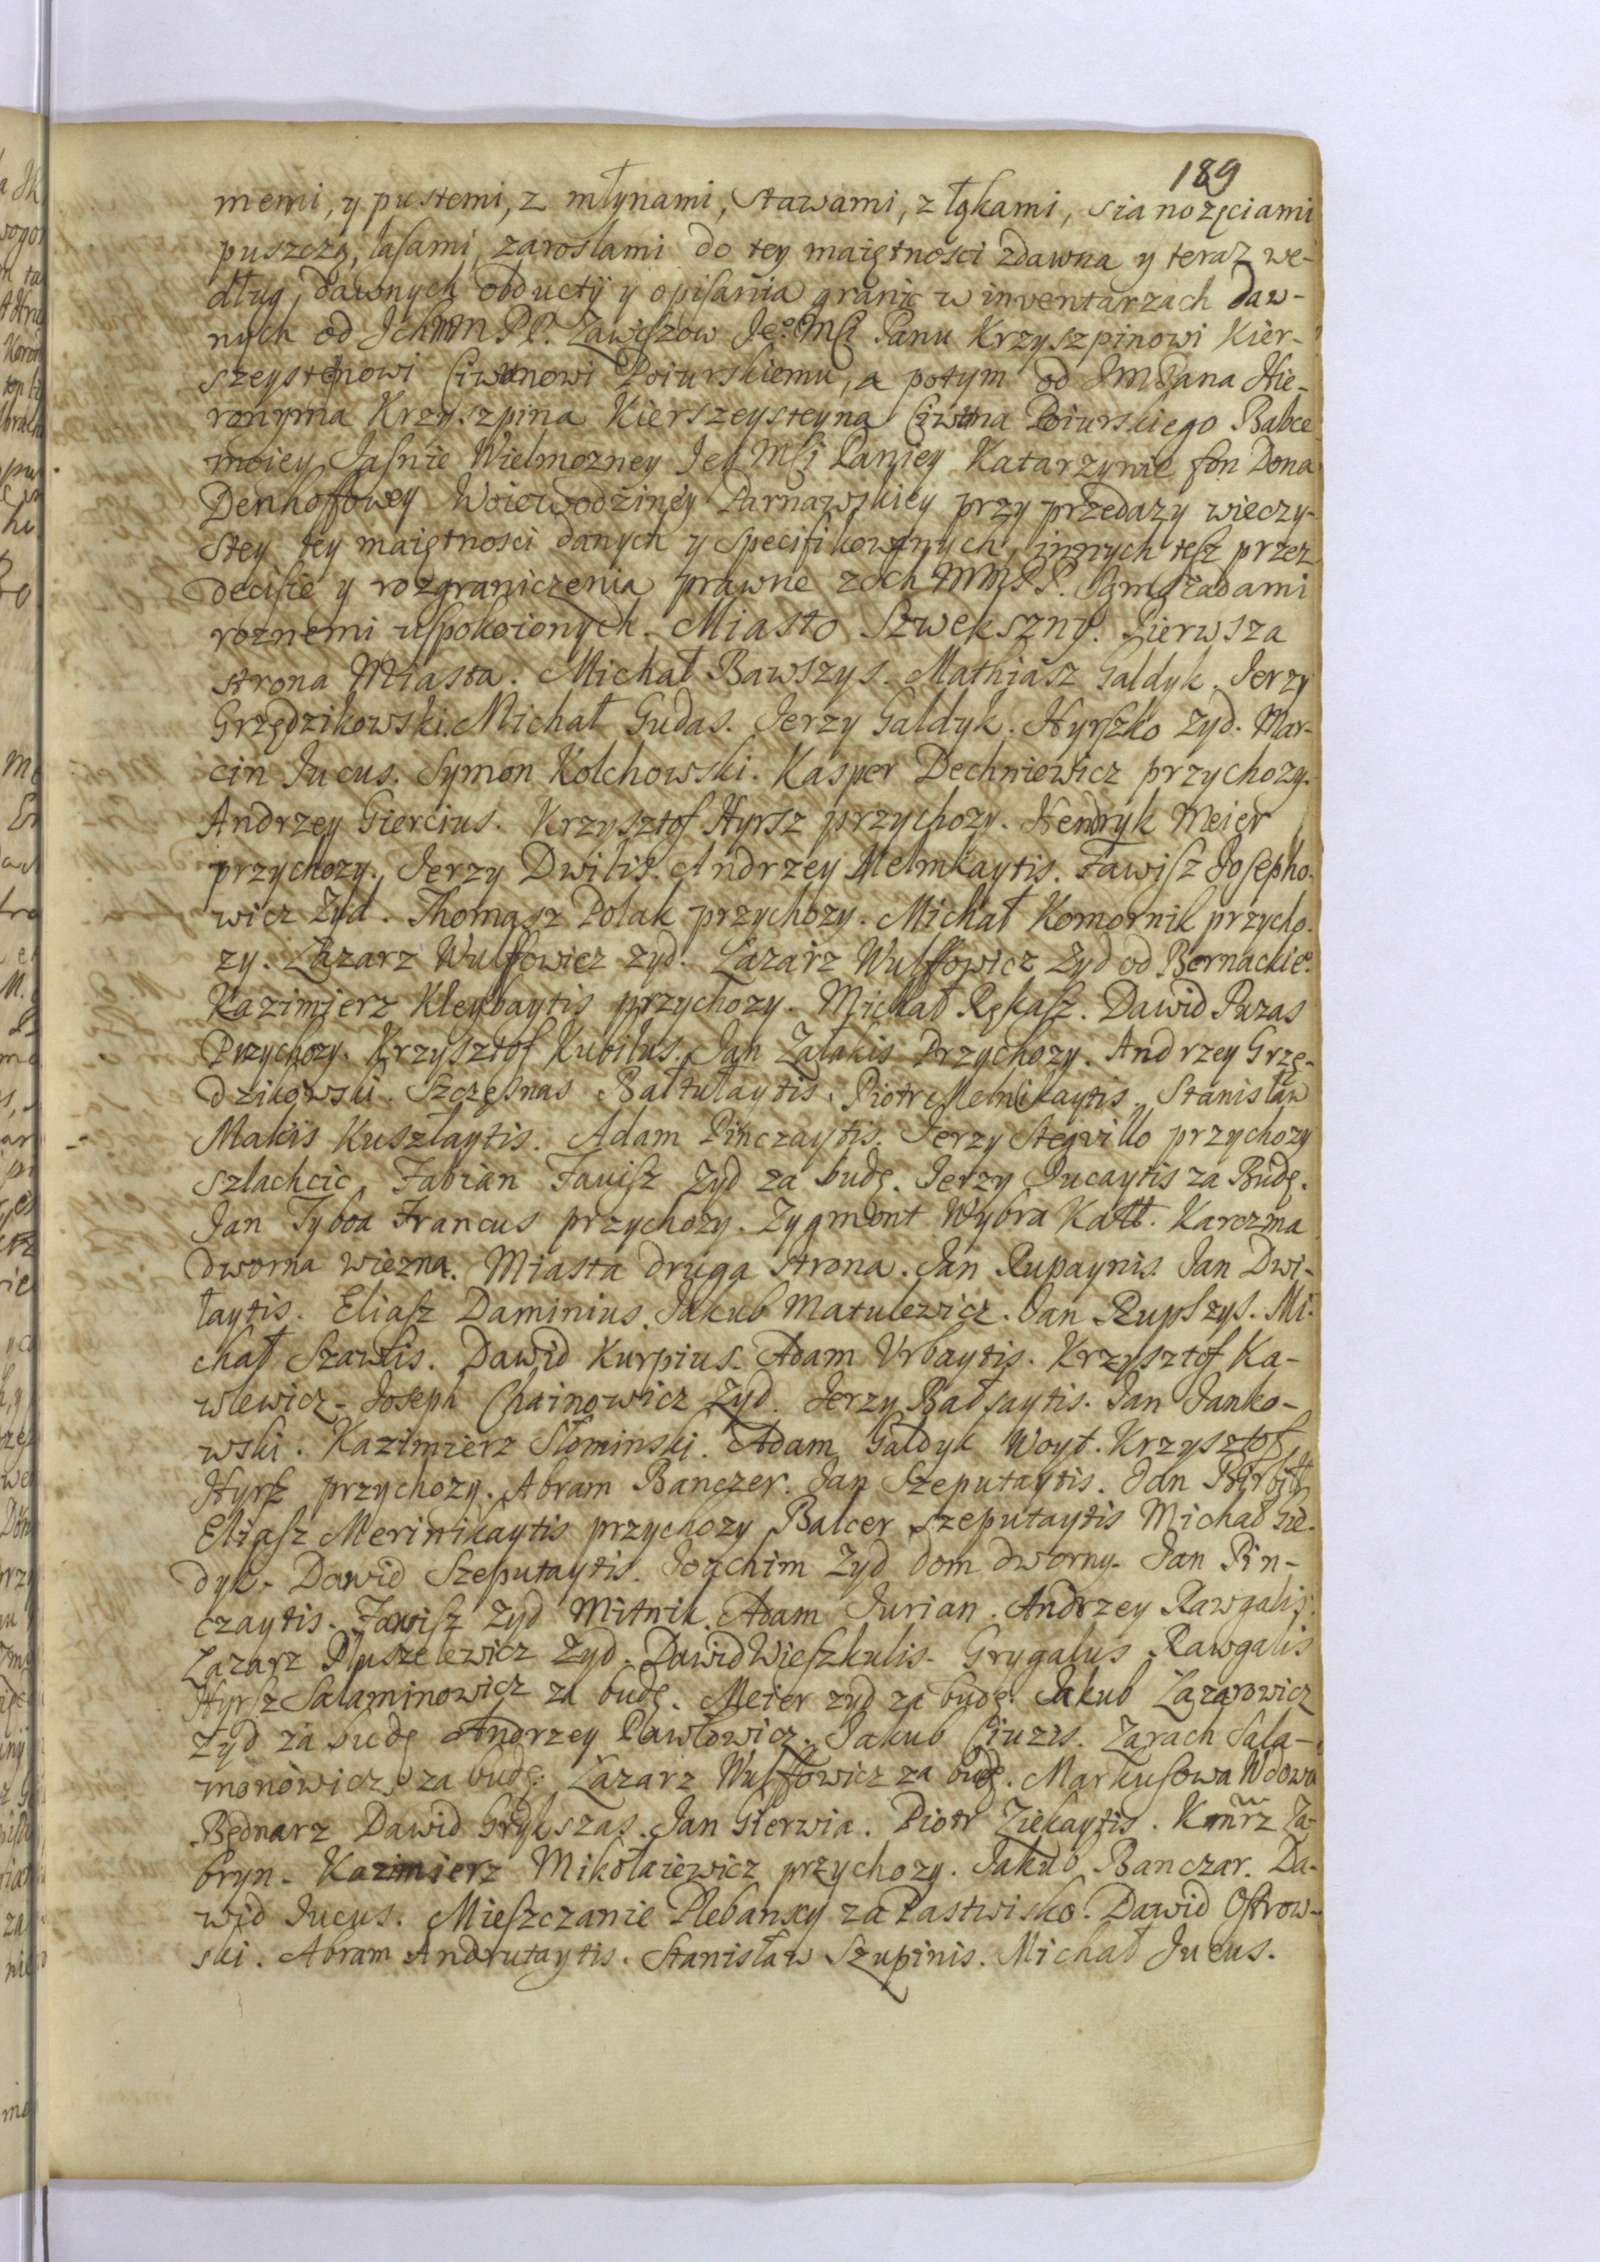 189
memi, y pustemi, z młynami, stawami, z łąkami, sianożęciami
puszczą, lasami, zaroslami do tey maiętności zdawna y teraz we-
dług, dawnych obductÿ y opisania granic w inventarzach daw-
nych od Ichmm P.P. Zawiszow Je° Mści Panu Krzyszpinowi Kier-
szeystenowi Ciwunowi Poiurskiemu, a potym od JMPana Hie-
ronyma Krzyszpina Kierszeysteyna Ciwuna Poiurskiego Babce
moiey Jaśnie Wielmozney Jey Mści Paniey Katarzynie fon Dona
Denhoffowey Woiewodźiney Parnawskiey przy przedazy wieczy-
stey tey maiętnosci danych y specifikowanych, innych tesz przez
decisie y rozgraniczenia prawne zoch MMPP.
roznemi uspokoionych. Miasto Szwekszny. Pierwsza
strona Miasta. Michał Bawszys. Mathiasz Galdyk. Jerzy
Grzędzikowski. Michał Gudas. Jerzy Galdyk. Hyrszko Zyd. Mar-
cin Jucus. Symon Kolchowski. Kasper Dechniewicz przychozy.
Andrzey Giercius. Krzysztof Hyrsz przychozy. Hendryk Meier
przychozy. Jerzy Dwilis. Andrzey Melmkaytis. Fawisz Josepho-
wicz Zyd. Thomasz Polak przychozy. Michał Komornik przycho-
zy. Łazarz Wulffowicz zyd. Łazarz Wulffowicz Zyd od Bernackie°
Kazimierz Kleybaytis przychozy. Michał Rękasz. Dawid Puzas
Przychozy. Krzysztof Kubilus. Jan Załakis Przychozy. Andrzey Grzę-
dzikowski. Szczęsnas Bałtułaytis. Piotr Melnikaytis. Stanisław
Makis Kuszłaytis. Adam Pinczaytis. Jerzy Stegwillo przychozy
szlachcic. Fabian Fawisz Zyd za budę. Jerzy Jucaytis za Budę.
Jan Tyboa Francus przychozy. Zygmont Wybra Katt. Karczma
dworna wiezna. Miasta druga strona. Jan Rupaynis. Jan Dwi-
łaytis. Eliasz Daminius. Jakub Matulewicz. Jan Rupszys. Mi-
chał Szawlis. Dawid Kurpius. Adam Urbaytis. Krzysztof Ka-
wlewicz. Joseph Chainowicz Zyd. Jerzy Bałsaytis. Jan Janko-
wski. Kazimierz Słominski. Adam Galdyk Woyt. Krzysztof
Hyrsz przychozy. Abram Banczer. Jan Szeputaytis. Jan
Eliasz Merinikaytis przychozy Balcer Szeputaytis Michał Gie-
dyk. Dawid Szeputaytis. Joachim Zyd dom dworny. Jan Pin-
czaytis. Fawisz Zyd Mitnik. Adam Jurian. Andrzey Rawgalis
Łazarz Pluszelewicz Zyd. Dawid Wieszkulis. Grygalus Rawgalis
Hyrsz Salaminowicz za budę. Meier zyd za budę. Jakub Łazarowicz
Zyd za budę Andrzey Pawłowicz. Jakub Ciuzis. Zarach Sala-
monowicz za budę. Łazarz Wulffowicz za budę. Markusowa Wdowa
Bednarz Dawid Grykszas. Jan Gierwia. Piotr Ziekaytis. Kmrz Za-
bryn. Kazimierz Mikołaiewicz przychozy. Jakub Banczar. Da-
wid Jucus. Mieszczanie Plebanscy za Pastwisko. Dawid Ostrow-
ski. Abram Andrutaytis. Stanisław Szupinis. Michał Jucus.